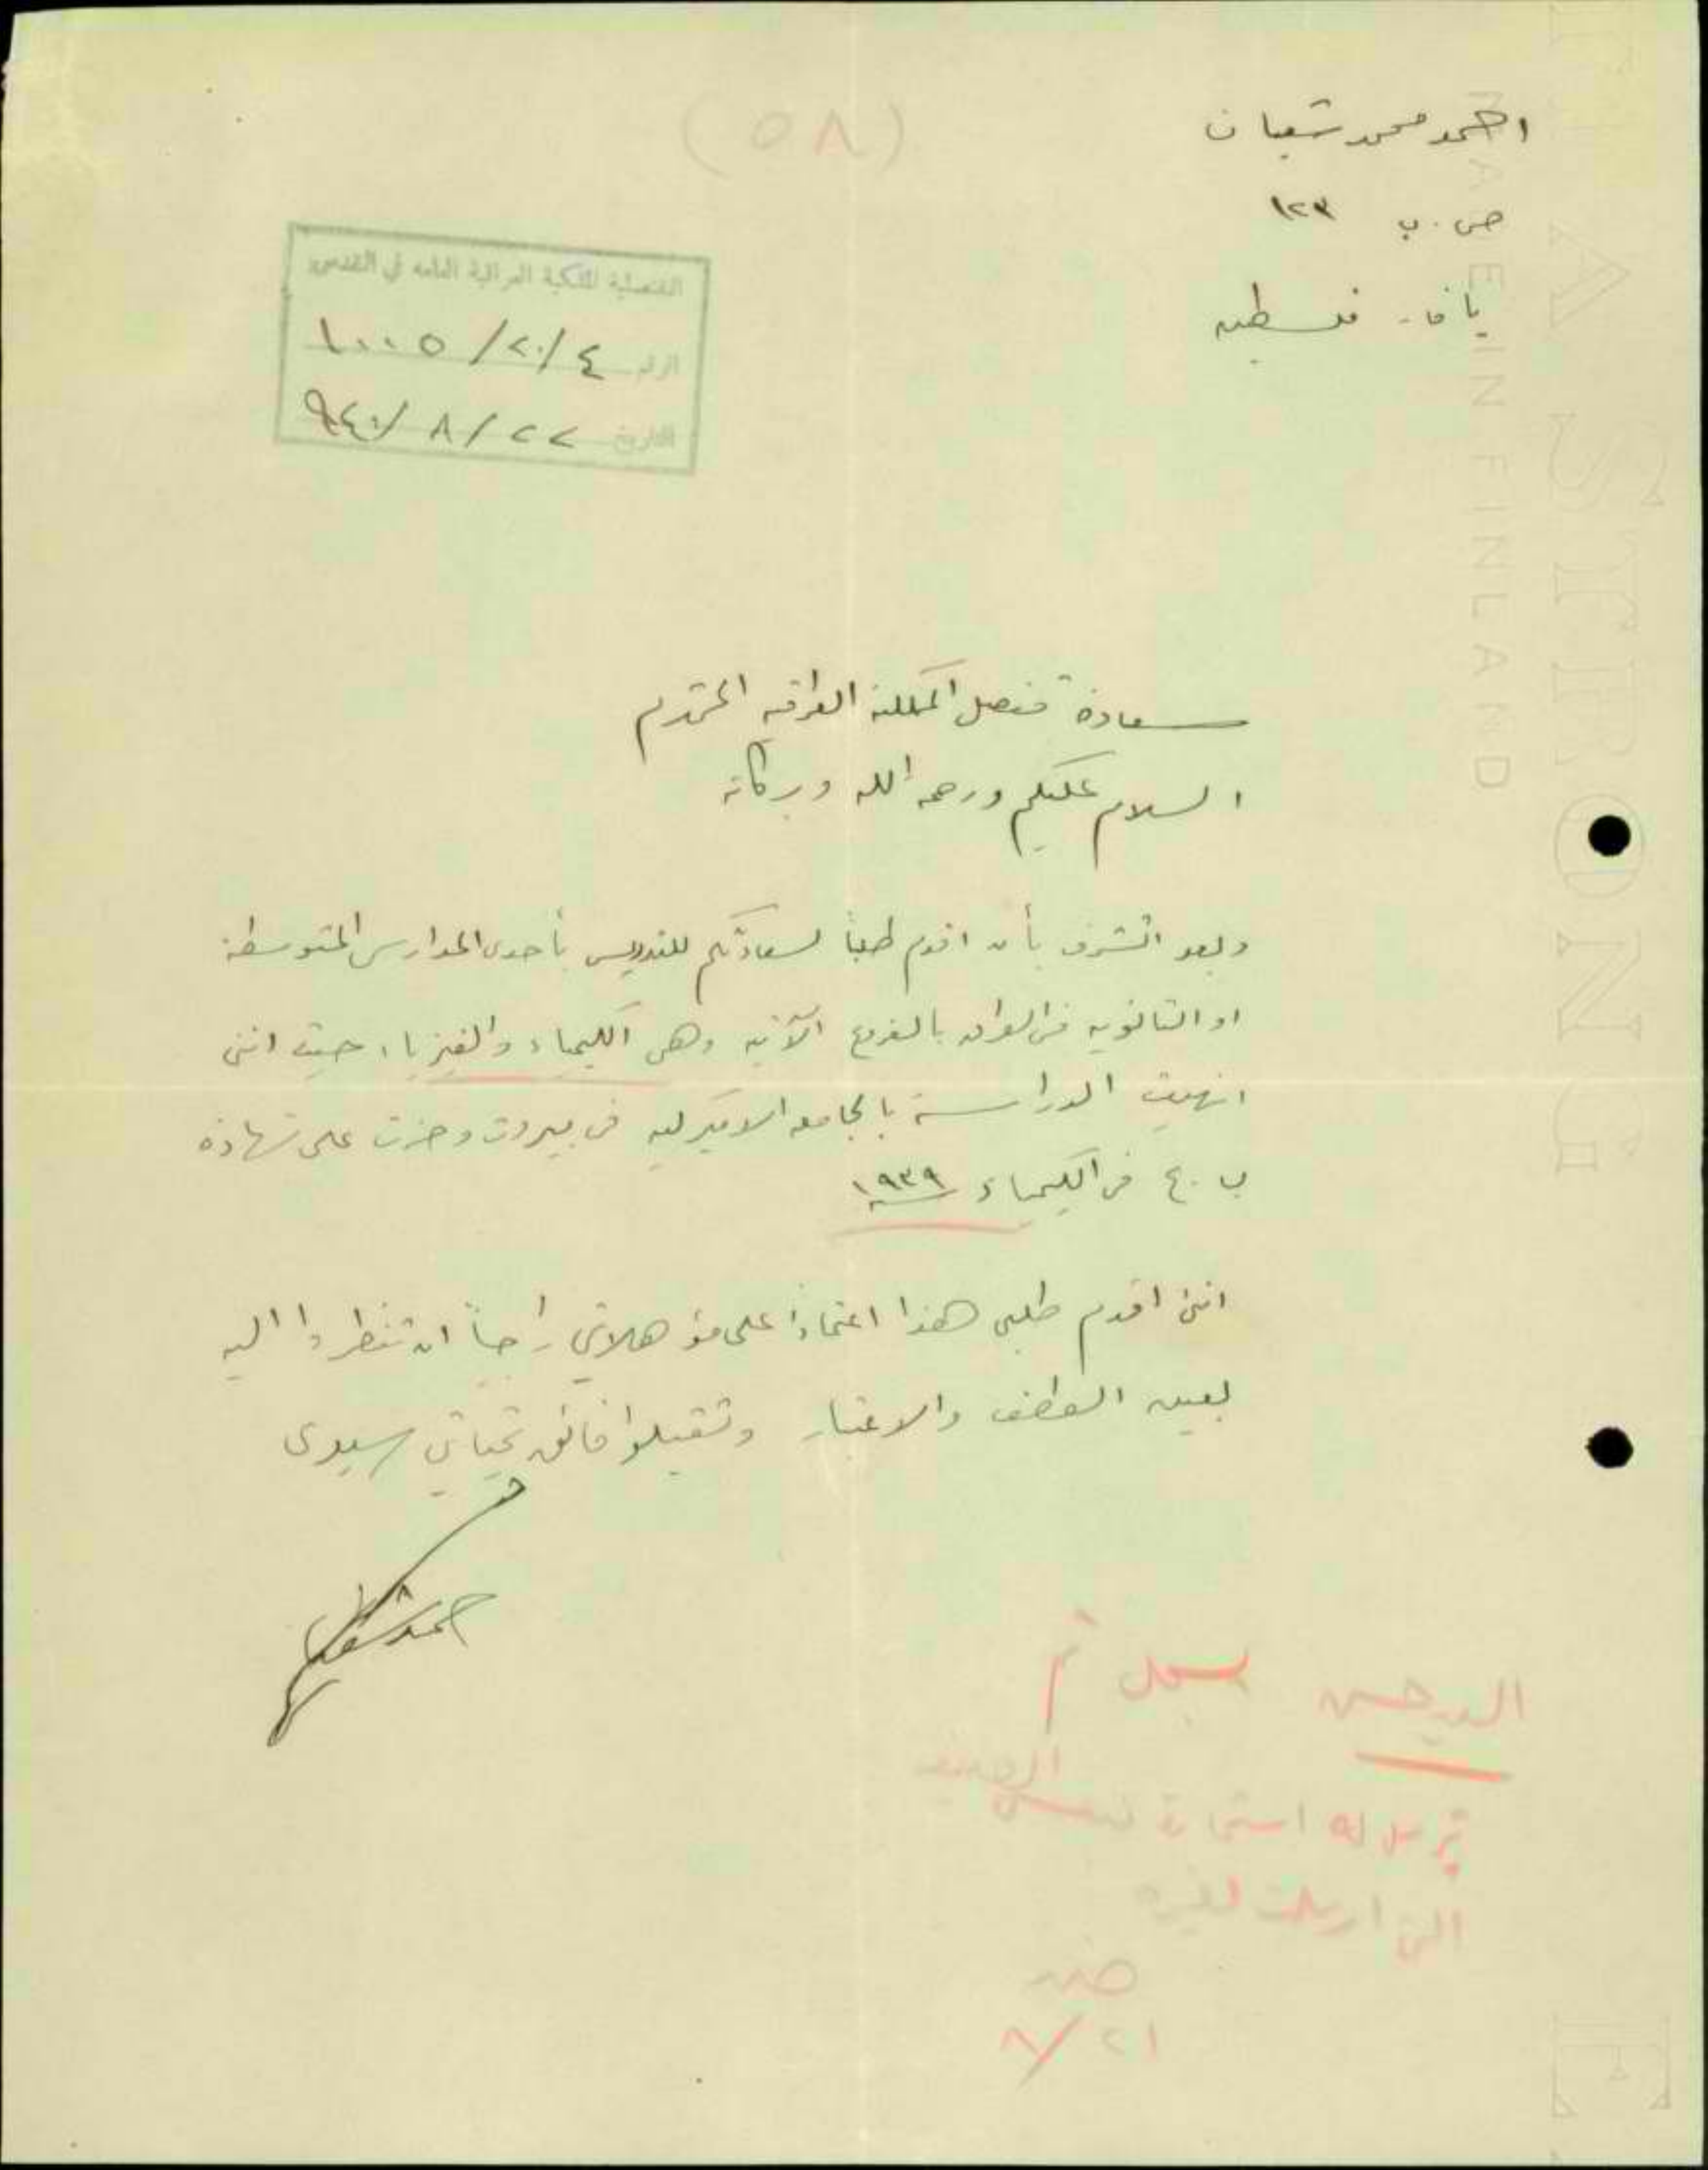 (٥٨)
احمد محمد شعبان
ص.ب ١٢٣
يافا - فلسطين
القنصلية الملكية العراقية العامة في القدس
الرقم ٤/٢٠/١٠٠٥
التاريخ ٢٢/٨/٩٤٠
سعادة قنصل المملكة العراقية المحترم
السلام عليكم ورحمة الله وبركاته
وبعد اتشرف بأن اقدم طلباً لسعادتكم للتدريس بأحدى المدارس المتوسطة
او الثانويه في العراق بالفروع الآتيه وهي الكيمياء والفيزياء حيث انني
انهيت الدراسة بالجامعه الاميركيه في بيروت وحزت على شهادة
ب.ع في الكيمياء سنة ١٩٣٩
انني اقدم طلبي هذا اعتماداً على مؤهلاتي راجياً ان تنظروا اليه
بعين العطف والاعتبار وتقبلوا فائق تحياتي سيدي
احمد شعبان
السيد حسن يسجل ثم
ترسل له استمارة بنفس الصيغة
التي ارسلت لغيره
٢١/٨
MADE IN FINLAND
EXTRA STRONG